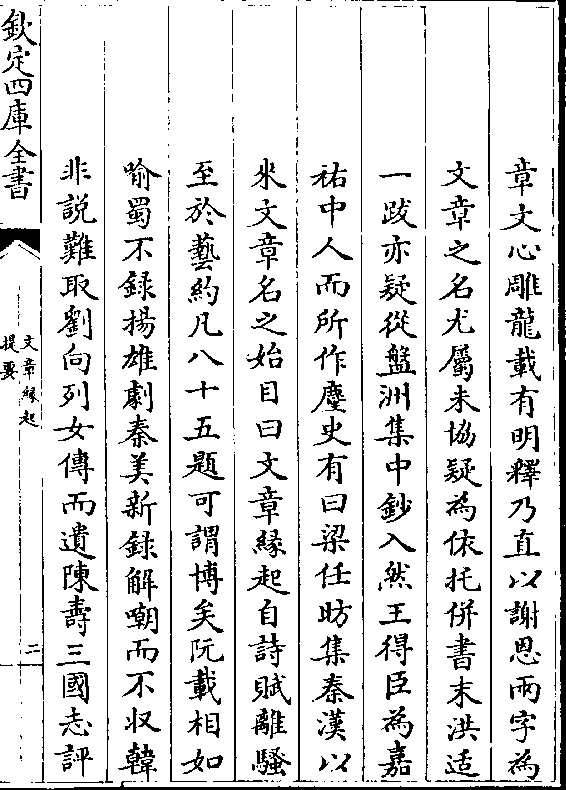 章文心雕龍載有明釋乃直以謝恩兩字為
文章之名尤屬未協疑為依托併書末洪适
一跋亦疑從盤洲集中鈔入然王得臣為嘉
祐中人而所作麈史有曰梁任昉集秦漢以
來文章名之始目曰文章緣起自詩賦離騷
至於藝約凡八十五題可謂博矣阮載相如
喻蜀不録揚雄劇秦美新録解嘲而不収韓
非説難取劉向列女傳而遺陳壽三國志評
欽定四庫全書
文章緣起
提要
二